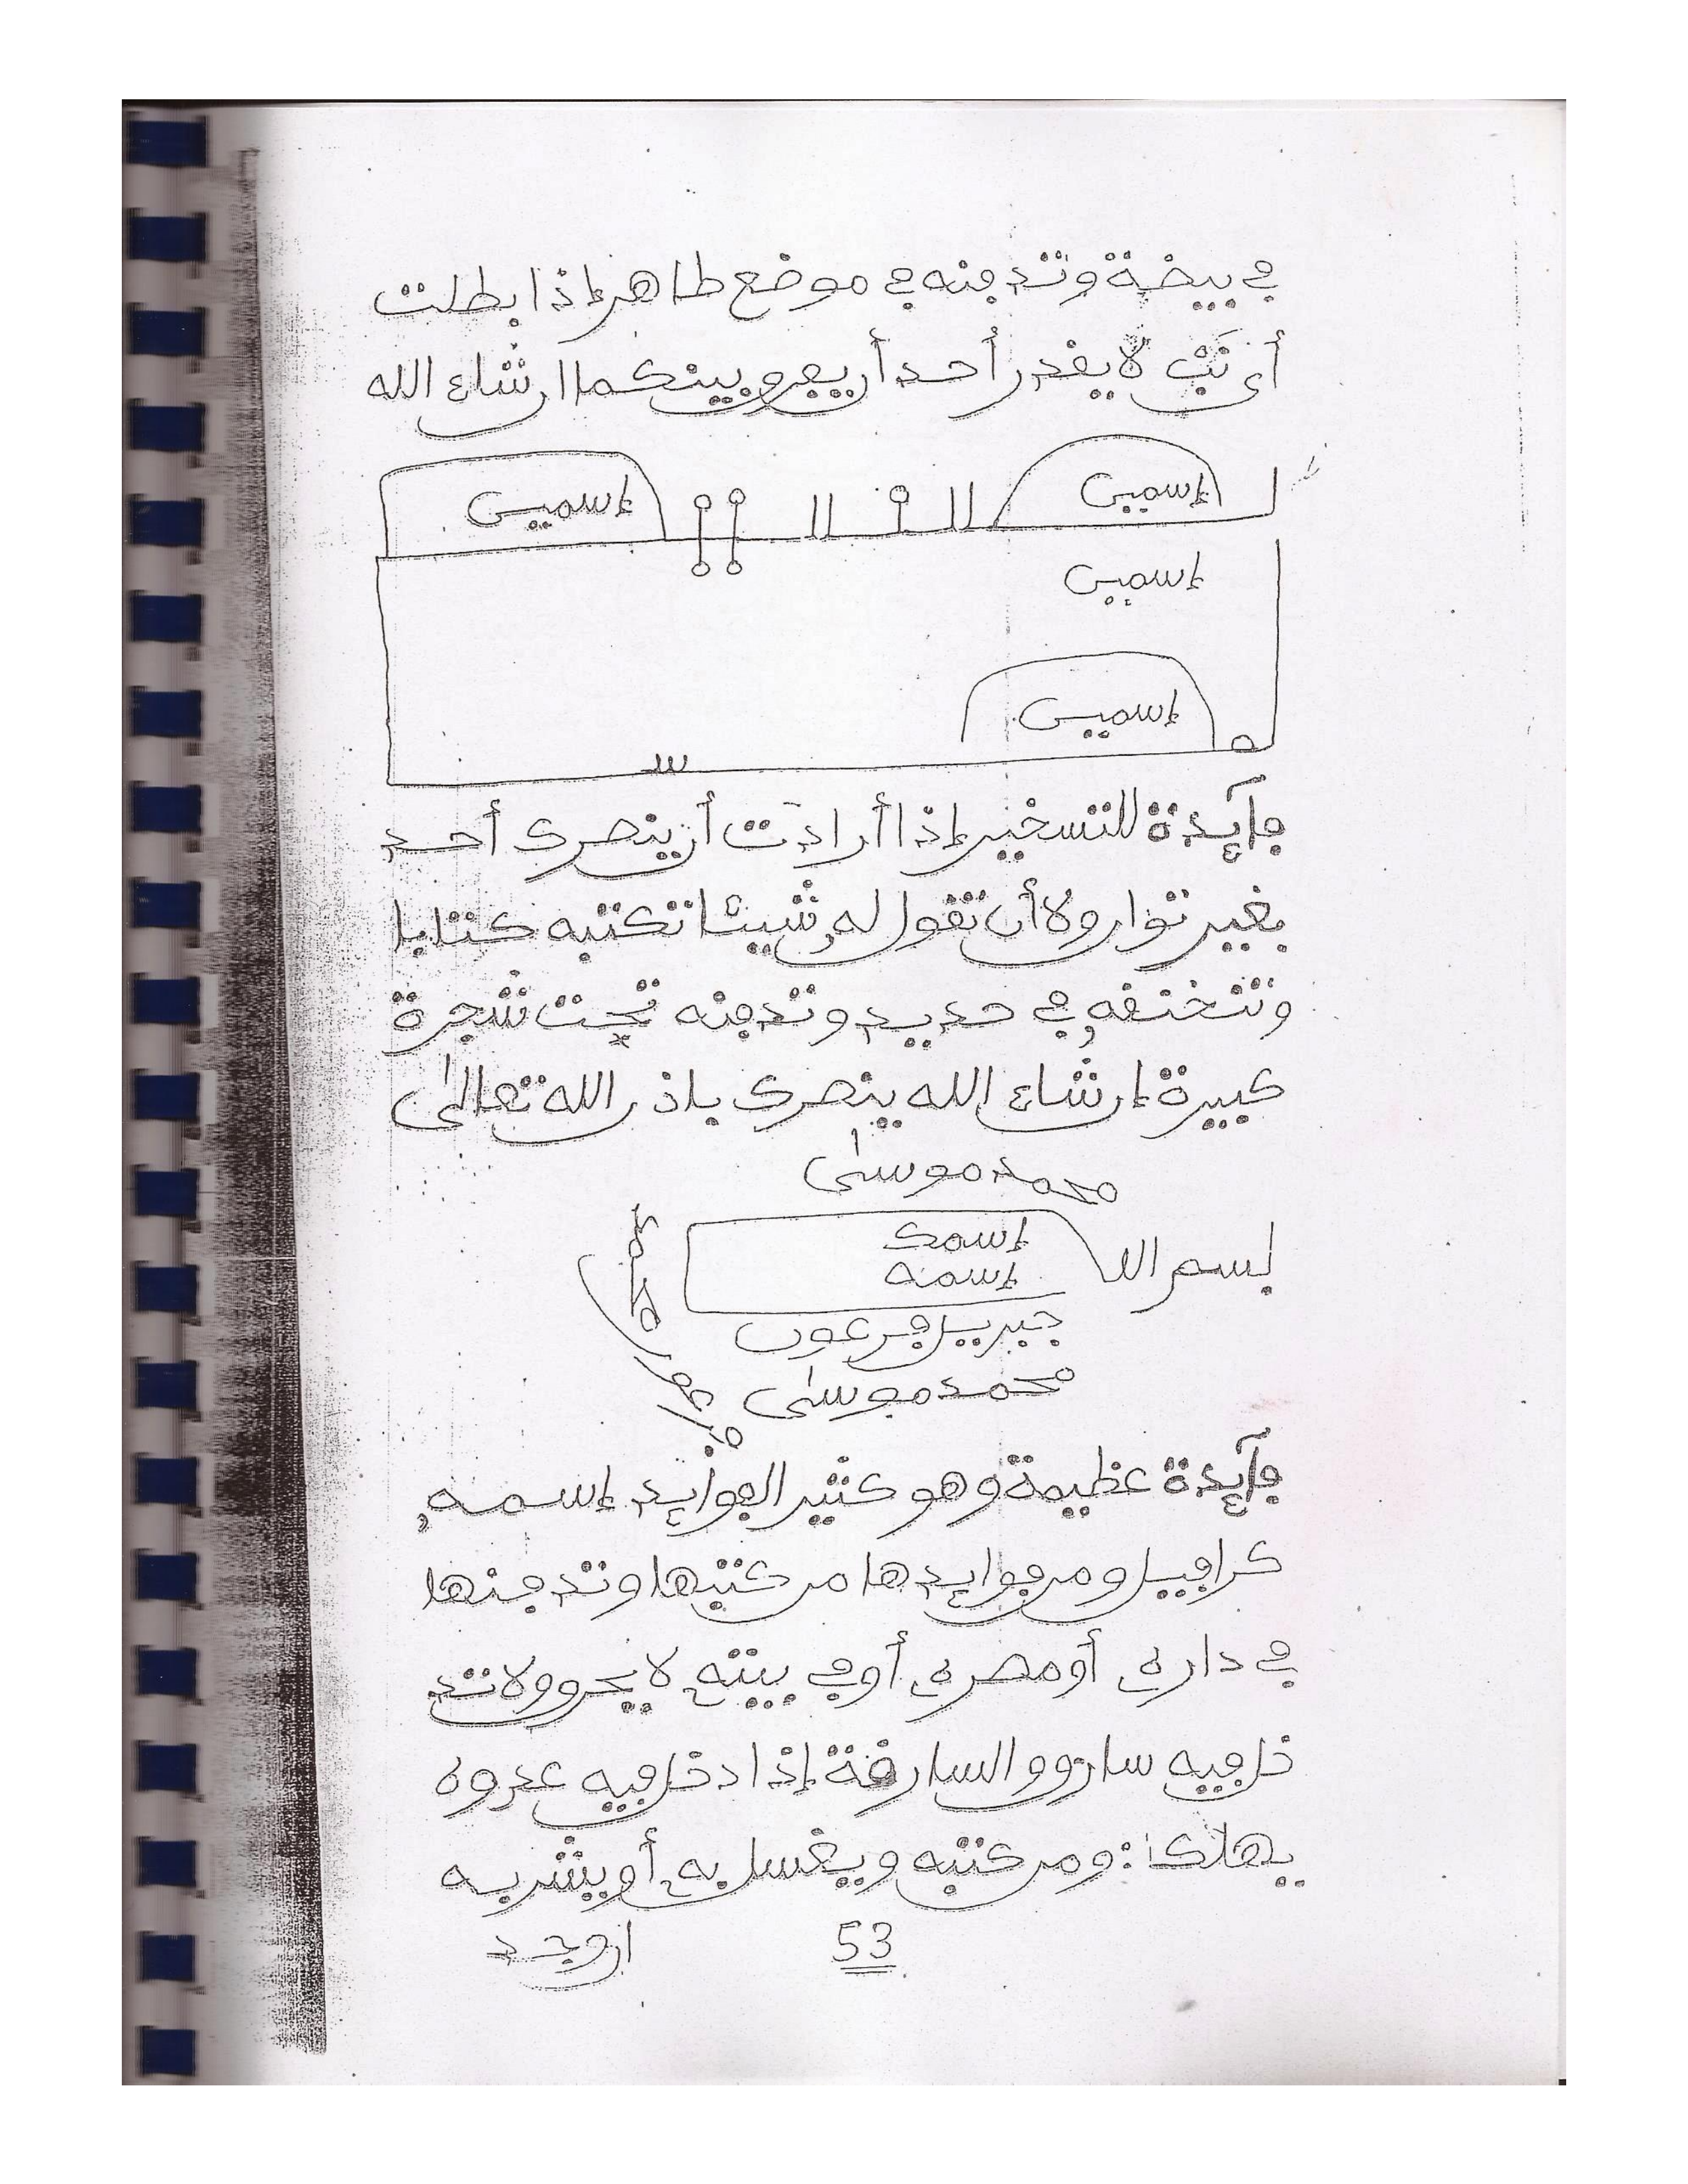 في بيضة وتدفنه في موضع طاهر إذا بطلت
لا يقدر أحد أن يفرق بينكما ان شاء الله
إسميں
إسميں
إسميں
إسميں
فآيدة للتسخير إذا أرادت أن ينصرك أحد
بغير توار ولا أن تقول له شيئا تكتبه كتابا
وتخنقه في حديد وتدفنه تحت شجرة
كبيرة إن شاء الله ينصرك باذن الله تعالى
محمد موسى
بسم الله
إسمك
إسمه
جبريل فرعون
محمد موسى
فآيدة عظيمة وهو كثير الفوايد إسمه
كرافيل ومن فوايدها من كتبها وتدفنها
في داره أو مصره أو في بيته لا يحرق ولا تد
خل فيه سارق والسارقة إذا دخل فيه عدوه
يهلك: ومن كتبه ويغسل به أو يشربه
53
ان وجد